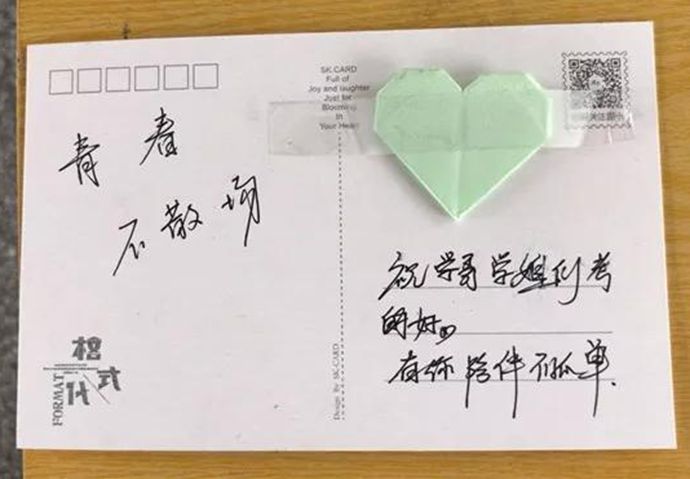 青春
不散场
SK.CARD
Full of
Joy and laughter
Just for
Blooming
In
Your Heart
祝学哥学姐们考
的好。
有你陪伴不孤单.
格式
化
FORMAT
Design By SK-CARD